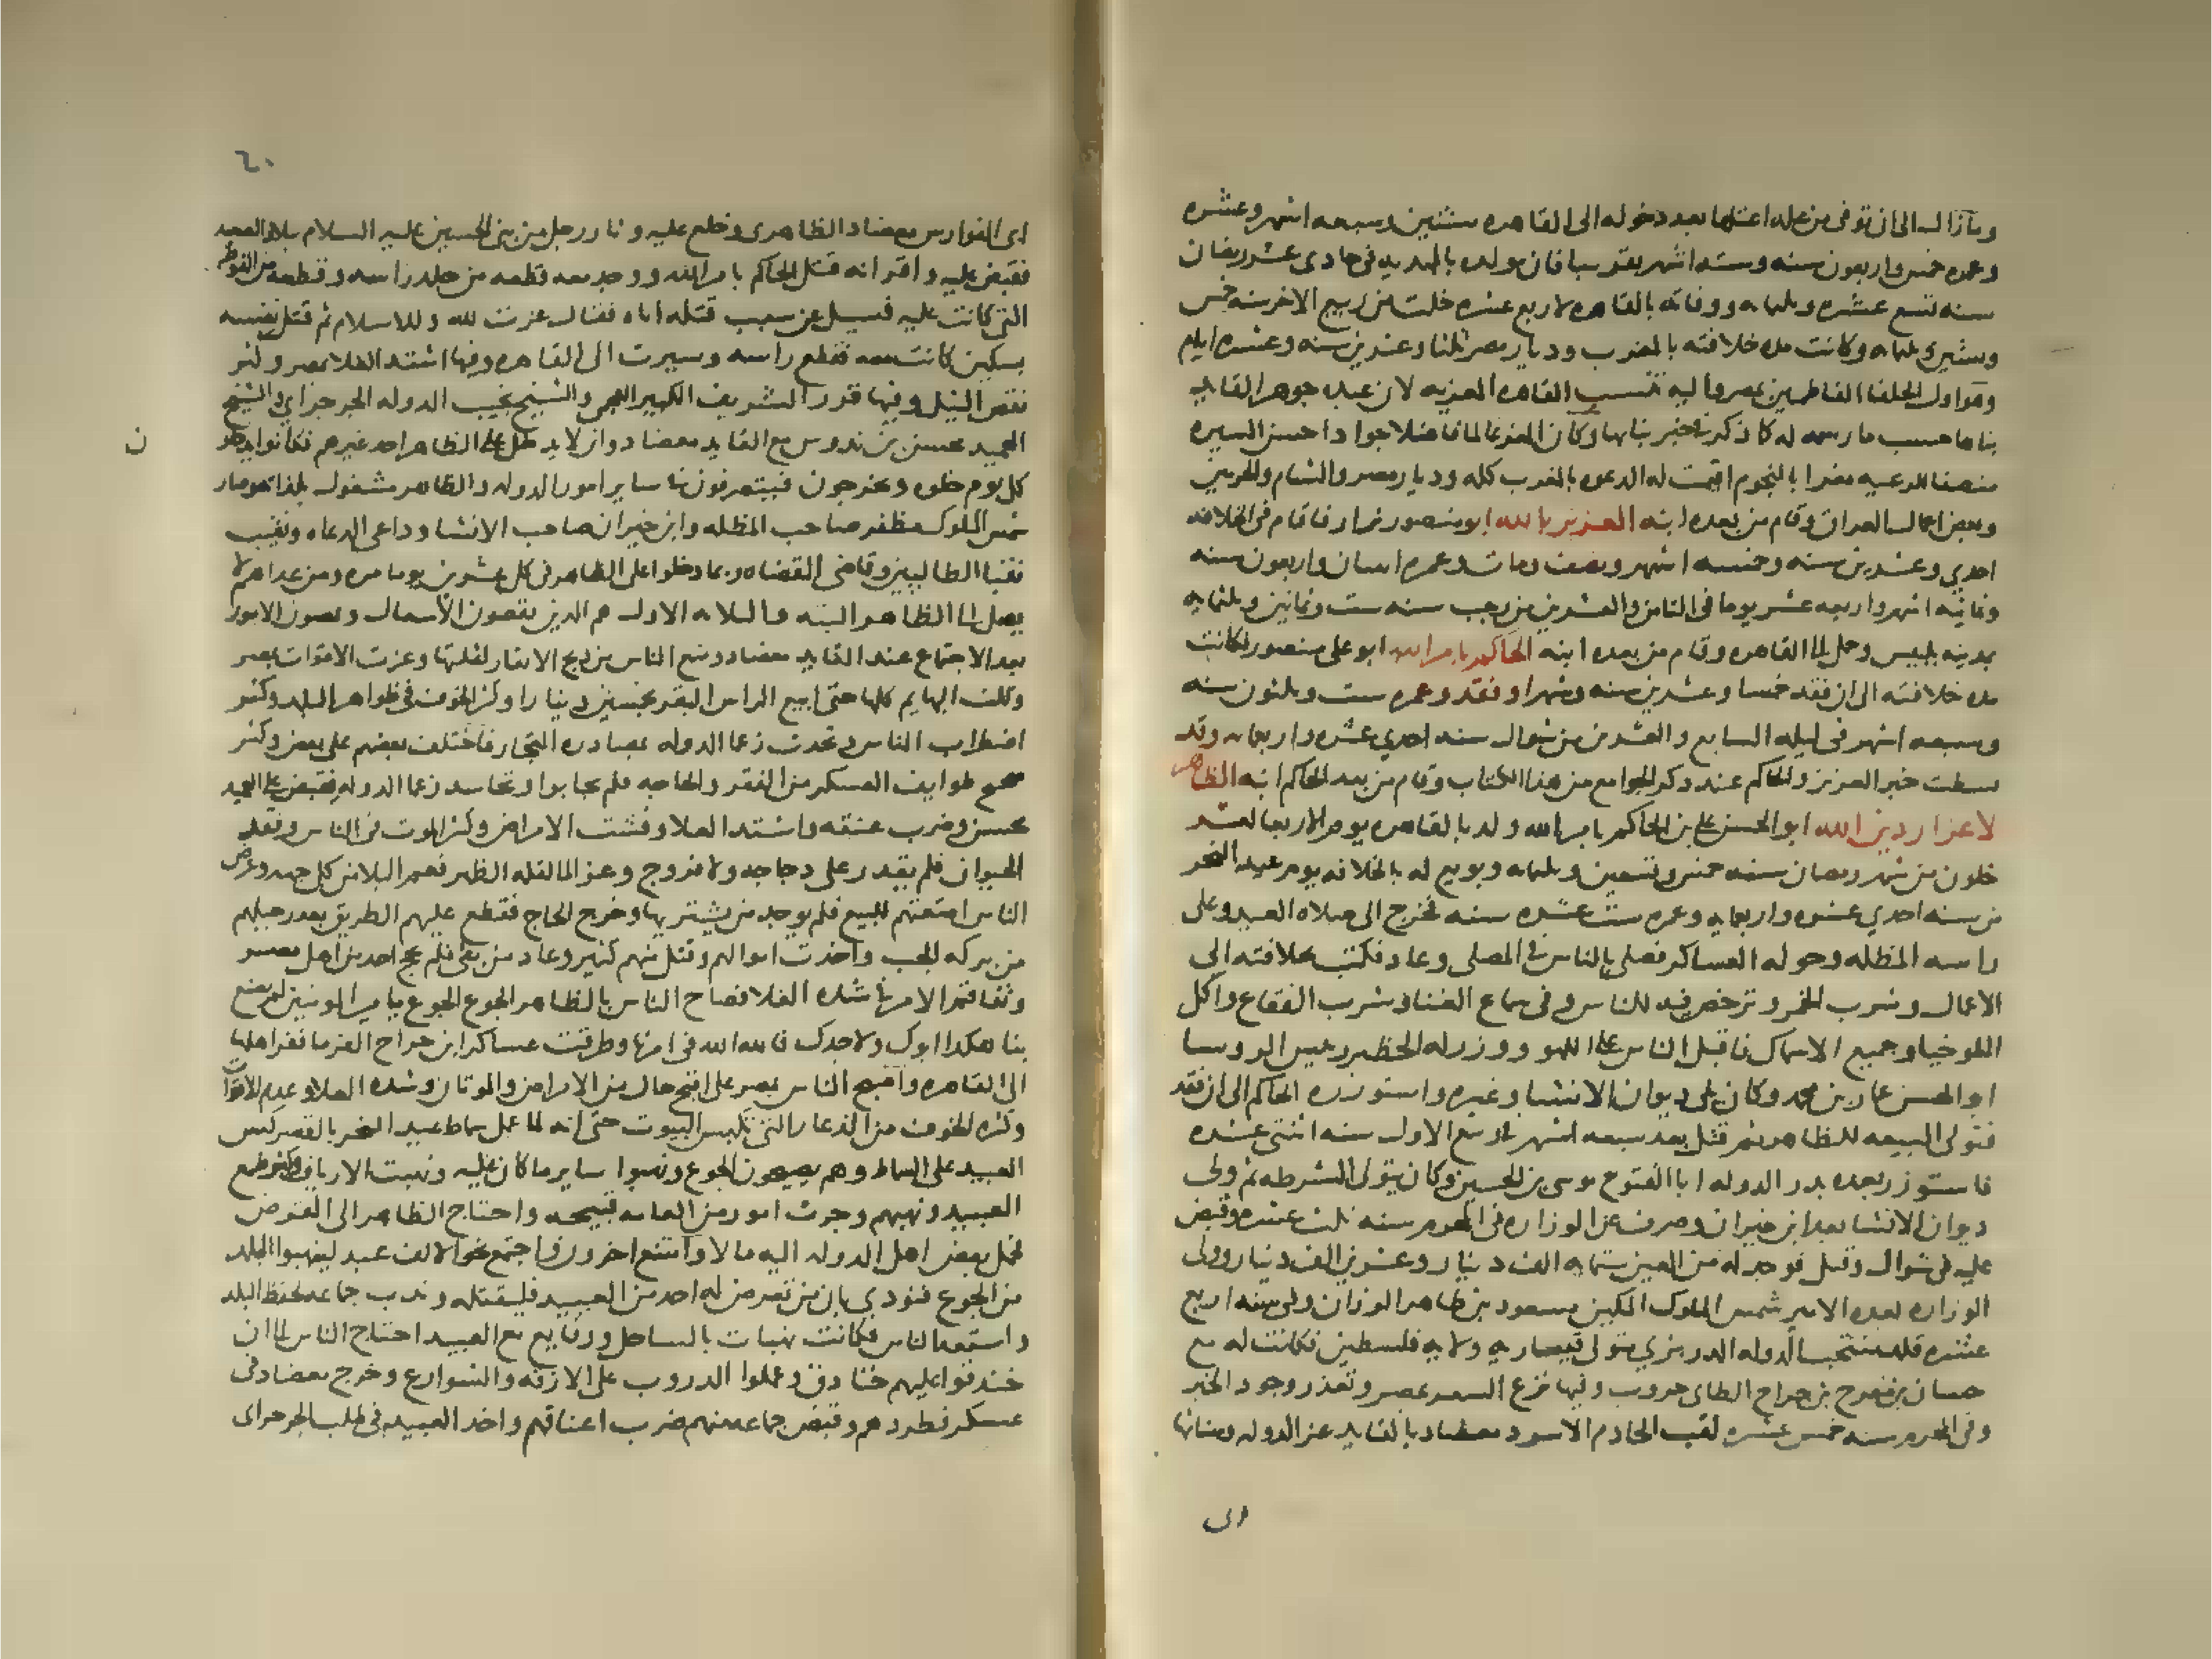 وما زال الى ان توفي من عله اعتلها بعد دخوله الى القاهره بسنتين وسبعه اشهر وعشره
وعمره خمس واربعون سنه وسته اشهر تقريبا فان مولده بالمهديه في حادي عشر رمضان
سنه تسع عشره وثلثمايه ووفاته بالقاهره لاربع عشره خلت من ربيع الاخر سنه خمس
وستين وثلثمايه وكانت مده خلافته بالمغرب وديار مصر ثلثا وعشرين سنه وعشره ايام
وهو اول الخلفا الفاطميين بمصر واليه تنسب القاهره المعزيه لان عبده جوهر القايد
بناها حسب ما رسمه له كما ذكر في خبر بنايها وكان المعز عالما فاضلا جوادا حسن السيره
منصفا للرعيه مغرا بالنجوم اقيمت له الدعوه بالمغرب كله وديار مصر والشام والحرمين
وبعض اعمال العراق وقام من بعده ابنه العزيز بالله ابو منصور نزار فاقام في الخلافه
احدي وعشرين سنه وخمسه اشهر ونصف ومات وعمره اثنان واربعون سنه
وثمانيه اشهر واربعه عشر يوما في الثامن والعشرين من رجب سنه ست وثمانين وثلثمايه
بمدينه بلبيس وحمل الى القاهره وقام من بعده ابنه الحاكم بامر الله ابو على منصور فكانت
مده خلافته الى ان فقد خمسا وعشرين سنه وشهرا وفقد وعمره ست وثلثون سنه
وسبعه اشهر في ليله السابع والعشرين من شوال سنه احدي عشره واربعمايه وقد
بسطت خبر العزيز والحاكم عند ذكر الجوامع من هذا الكتاب وقام من بعد الحاكم ابنه الظاهر
لاعزاز دين الله ابو الحسن علي بن الحاكم بامر الله ولد بالقاهره يوم الاربعا لعشر
خلون من شهر رمضان سنه خمس وتسعين وثلثمايه وبويع له بالخلافه يوم عيد النحر
من سنه احدي عشره واربعمايه وعمره ست عشره سنه فخرج الى صلاه العيد وعلى
راسه المظله وحوله العساكر فصلى بالناس في المصلى وعاد فكتب بخلافته الى
الاعمال وشرب الخمر وترخص فيه للناس وفي سماع الغنا وشرب الفقاع واكل
الملوخيا وجميع الاسماك فاقبل الناس على اللهو ووزر له الخطير رييس الروسا
ابو الحسن عمار بن محمد وكان يلي ديوان الانشا وغيره واستوزره الحاكم الى ان فقد
فتولى البيعه للظاهر ثم قتل بعد سبعه اشهر في ربيع الاول سنه اثنتي عشره
فاستوزر بعده بدر الدوله ابا الفتوح موسى بن الحسين وكان يتولى الشرطه ثم ولى
ديوان الانشا بعد ابن خيران وصرف عن الوزاره في المحرم سنه ثلث عشره وقبض
عليه في شوال وقتل فوجد له من العين ستمايه الف دينار وعشرين الف دينار وولى
الوزاره بعده الامير شمس الملوك المكين مسعود بن طاهر الوزان وفي سنه اربع
عشره قلد منتخب الدوله الدزبري متولى قيساريه ولايه فلسطين فكانت له مع
حسان بن مفرج بن جراح الطاى حروب وفيها نزع السعر بمصر وتعذر وجود الخبز
وفي المحرم سنه خمس عشره لقب الخادم الاسود معضاد بالقايد عز الدوله وسنانها
ابى
٦٠
ابى الفوارس معضاد الظاهرى وخلع عليه وثار رجل من بني الحسين عليه السلام ببلاد الصعيد
فقبض عليه واقر انه قتل الحاكم بامر الله ووجد معه قطعه من جلد راسه وقطعه من الفوطه
التي كانت عليه فسيل عن سبب قتله اياه فقال غرت لله وللاسلام ثم قتل نفسه
بسكين كانت معه فقطع راسه وسيرت الى القاهره وفيها اشتد الغلا بمصر وكثر
نقص النيل وفيها قرر الشريف الكبير العجمي والشيخ نجيب الدوله الجرجراي والشيخ
العميد محسن بن بدوس مع القايد معضاد وان لا يدخل على الظاهر احد غيرهم فكانوا يدخلون
كل يوم خلوه ويخرجون فيتصرفون في ساير امور الدوله والظاهر مشغول بلذاته وصار
شمس الملوك مظفر صاحب المظله وابن خيران صاحب الانشا وداعى الدعاه ونقيب
نقبا الطالبيين وقاضى القضاه ربما دخلوا على الظاهر في كل عشرين يوما مره ومن عداهم لا
يصل الى الظاهر البته والثلاثه الاول هم الذين يقضون الاشغال ويمضون الامور
بعد الاجتماع عند القايد معضاد ومنع الناس من ذبح الابقار لقلتها وعزت الاقوات بمصر
وقلت البهايم كلها حتى ابيع الراس البقر بخمسين دينارا وكثر الخوف في ظواهر البلد وكثر
اضطراب الناس وتحدث زعما الدوله بمصادره التجار فاختلف بعضهم على بعض وكثر
ضجيج طوايف العسكر من الفقر والحاجه فلم يجابوا وتحاسد زعما الدوله فقبض على العميد
محسن وضرب عنقه واشتد الغلا وفشت الامراض وكثر الموت في الناس وفقد
الحيوان فلم يقدر على دجاجه ولا فروج وعز الما لقله الظهر فعم البلا من كل جهه وعرض
الناس امتعتهم للبيع فلم يوجد من يشتريها وخرج الحاج فقطع عليهم الطريق بعد رحيلهم
من بركه الجب واخذت اموالهم وقتل منهم كثير وعاد من بقى فلم يحج احد من اهل مصر
وتفاقم الامر في شده الغلا فصاح الناس بالظاهر الجوع الجوع يا امير المومنين لم يصنع
بنا هكذا ابوك ولا جدك فالله الله في امرنا وطرقت عساكر ابن جراح الفرما ففر اهلها
الى القاهره واصبح الناس بمصر على اقبح حال من الامراض والموتان وشده الغلا وعدم الاقوات
وكثره الخوف من الذعار التي تكبس البيوت حتى انه لما عمل سماط عيد النحر بالقصر كبس
العبيد على السماط وهم يصيحون الجوع ونهبوا ساير ما كان عليه ونهبت الارياف وكثر طمع
العبيد ونهبهم وجرت امور من العامه قبيحه واحتاج الظاهر الى القرض
فحمل بعض اهل الدوله اليه مالا وامتنع اخرون واجتمع نحو الالف عبد لينهبوا البلد
من الجوع فنودي بان من تعرض له احد من العبيد فليقتله وندب جماعه لحفظ البلد
واستعد الناس فكانت نهبات بالساحل ووقايع مع العبيد احتاج الناس الى ان
خندقوا عليهم خنادق وعملوا الدروب على الازقه والشوارع وخرج معضاد في
عسكر فطردهم وقبض جماعه منهم ضرب اعناقهم واخذ العبيد في طلب الجرجراى
ن